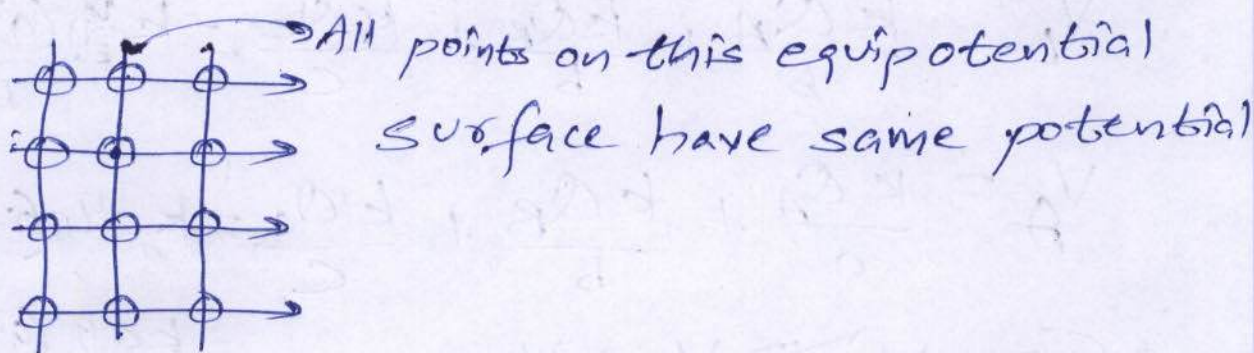 All points on this equipotential
surface have same potential